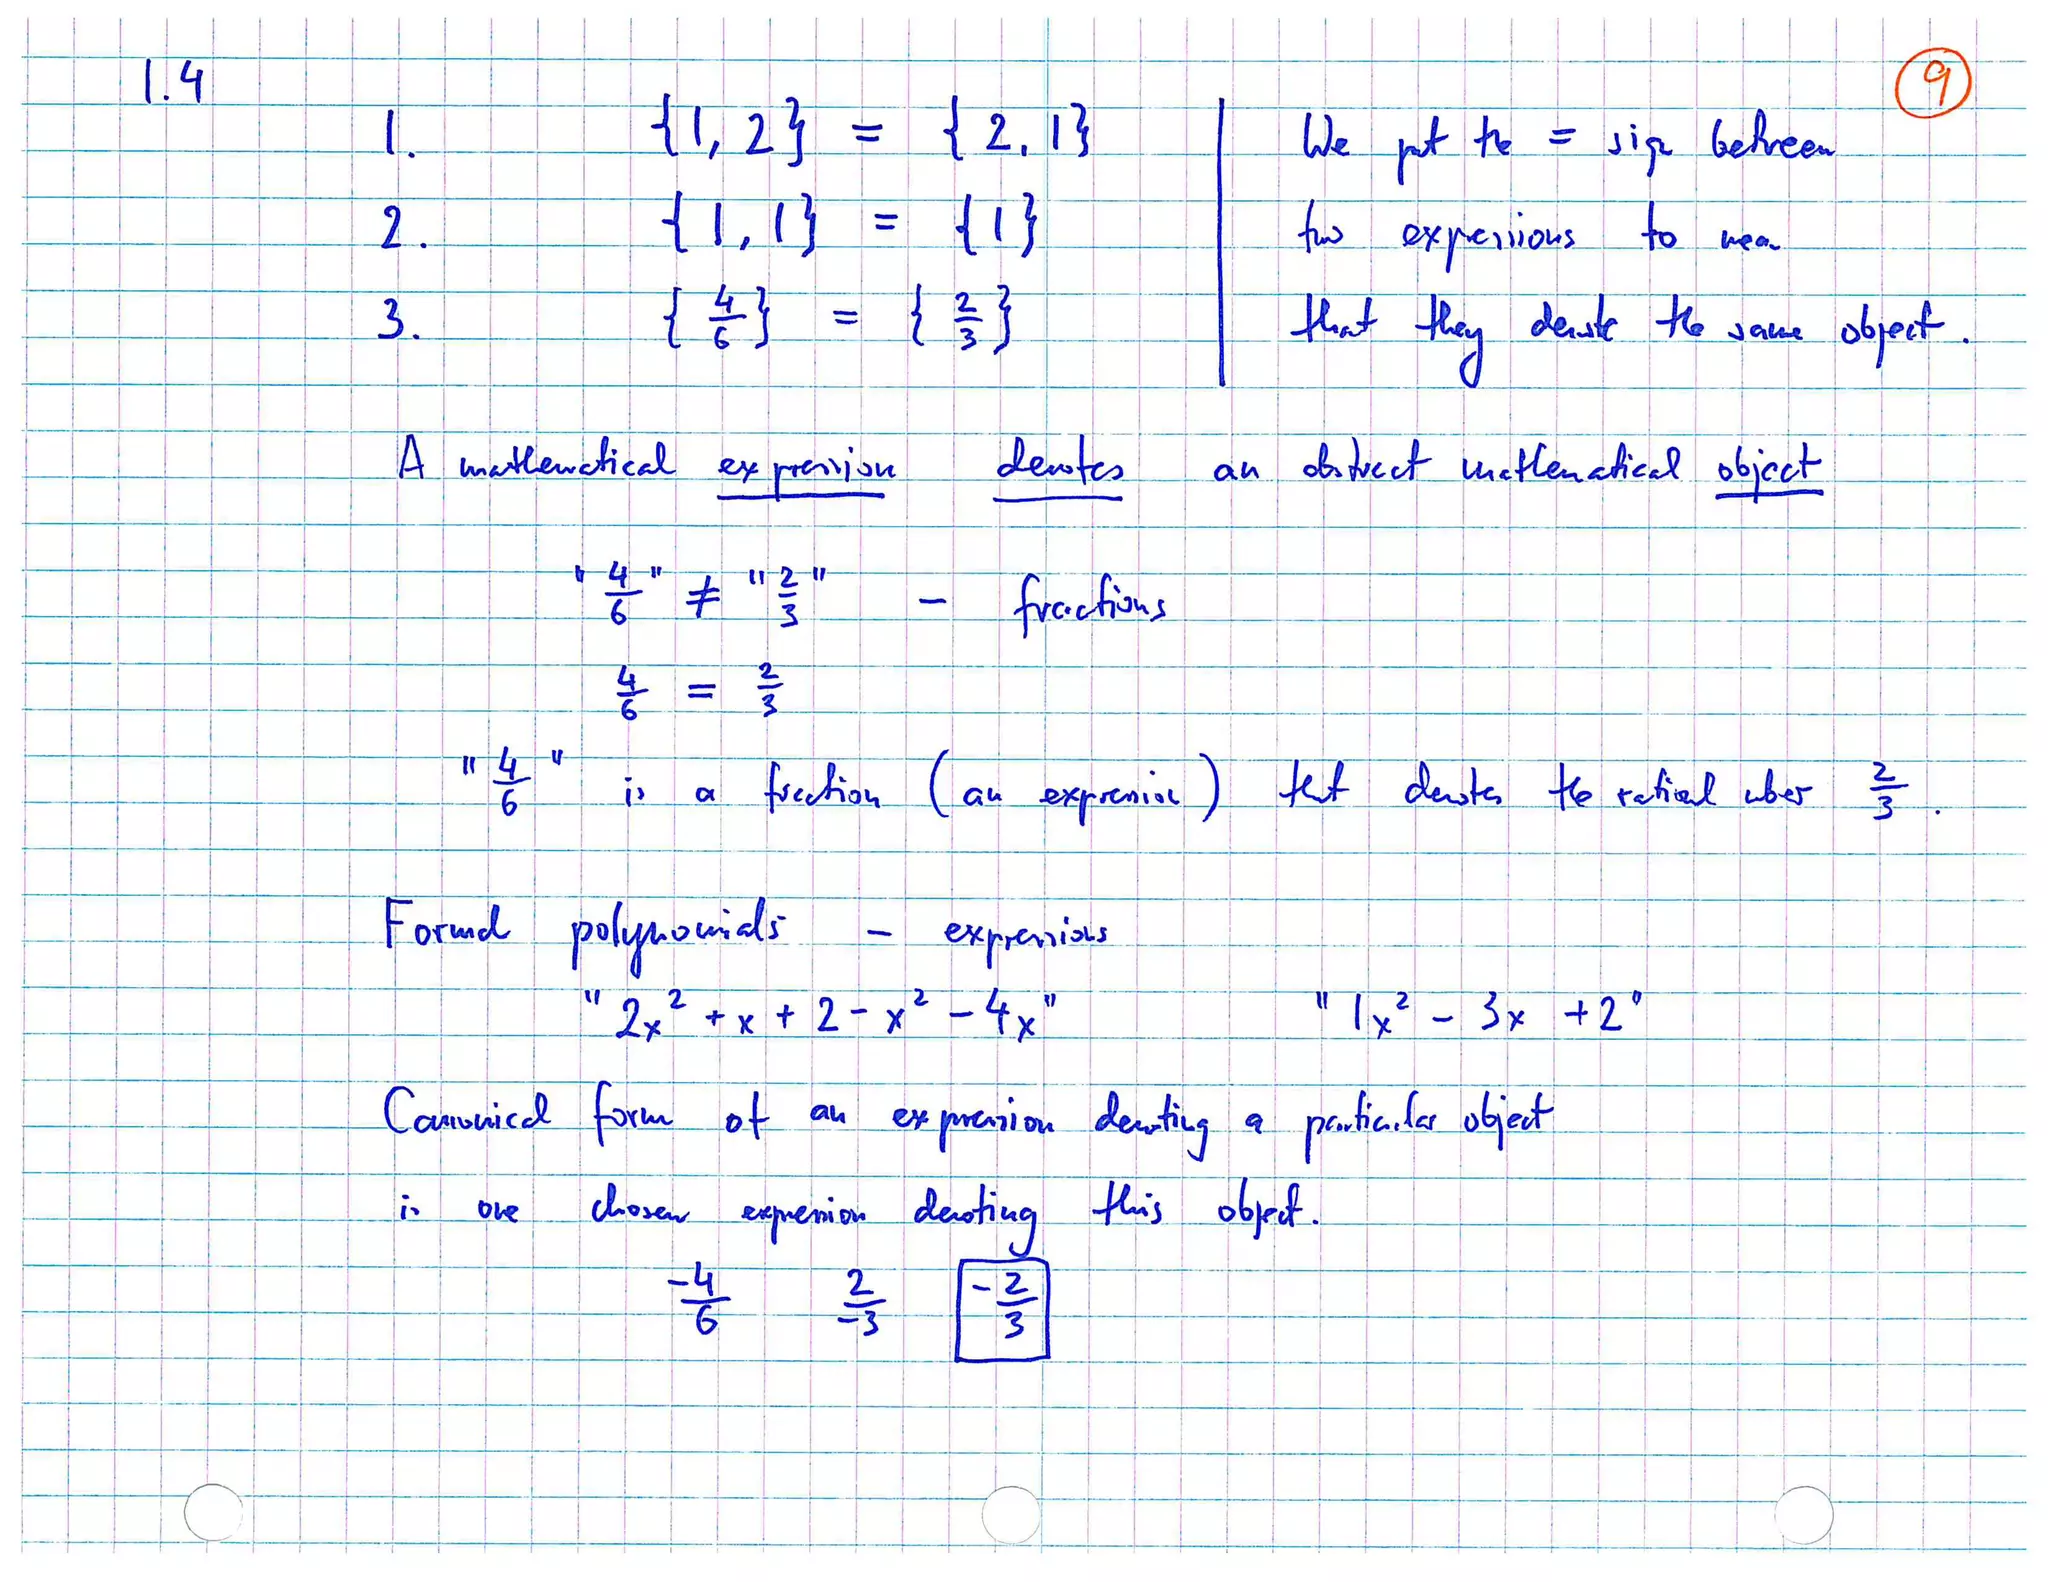 1.4
9
1. {1, 2} = {2, 1}
2. {1, 1} = {1}
3. {4/6} = {2/3}
We put the = sign between
two expressions to mean
that they denote the same object.
A mathematical expression denotes an abstract mathematical object
"4/6" ≠ "2/3" - fractions
4/6 = 2/3
"4/6" is a fraction (an expression) that denotes the rational number 2/3.
Formal polynomials - expressions
"2x² + x + 2 - x² - 4x" "1x² - 3x + 2"
Canonical form of an expression denoting a particular object
is one chosen expression denoting this object.
-4/6 2/-3 -2/3